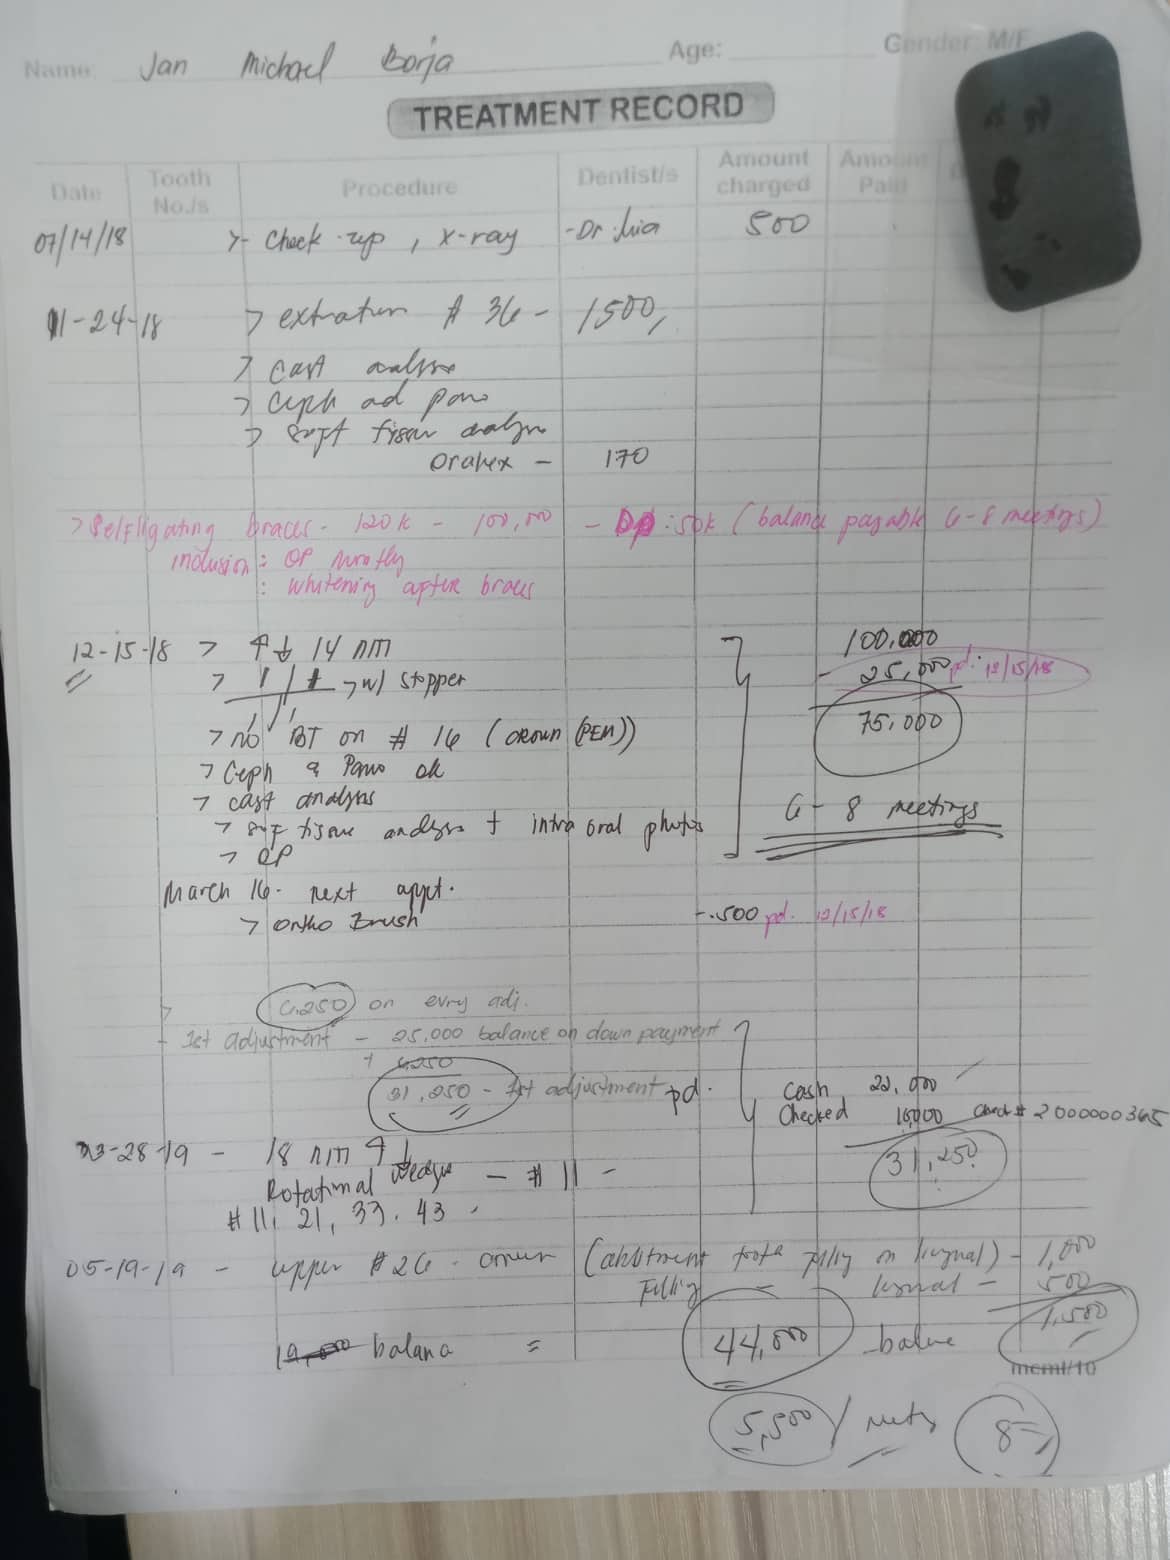 Name: Jan Michael Borja Age: Gender: M/F
TREATMENT RECORD
Date Tooth No./s Procedure Dentist/s Amount charged Amount Paid
07/14/18 > check-up, x-ray - Dr. 500
11-24-18 > extration # 36 - 1500,
> cast
> ceph ad pano
> soft
Oralex - 170
> Selfligating braces - 120k - 100,000 - DP: 50k (balance payable 6-8 meetings)
inclusion: OP
: whitening after braces
12-15-18 > ↑↓ 14 nm 100,000
> w/ stopper - 25,000 pd: 12/15/18
> no BT on # 16 (crown (PEM)) 75,000
> Ceph & Pano ok
> cast analysis
> soft tissue analysis + intra oral photos 6-8 meetings
> OP
March 16 - next appt.
> ortho Brush - 500 pd. 12/15/18
> 6,250 on evry adj.
- 1st adjustment - 25,000 balance on down payment
+ 6250
31,250 - 1st adjustment pd. Cash 22,000
Checked 10,000 check # 2000000365
03-28-19 - 18 nm ↑↓ 31,250
Rotational wedge - # 11 -
# 11, 21, 33, 43
05-19-19 - upper # 26 - ( filling on lingual) - 1,000
Filling - - 500
1,500
19,000 balana = 44,000 balne
mcml/10
5,500 / 8